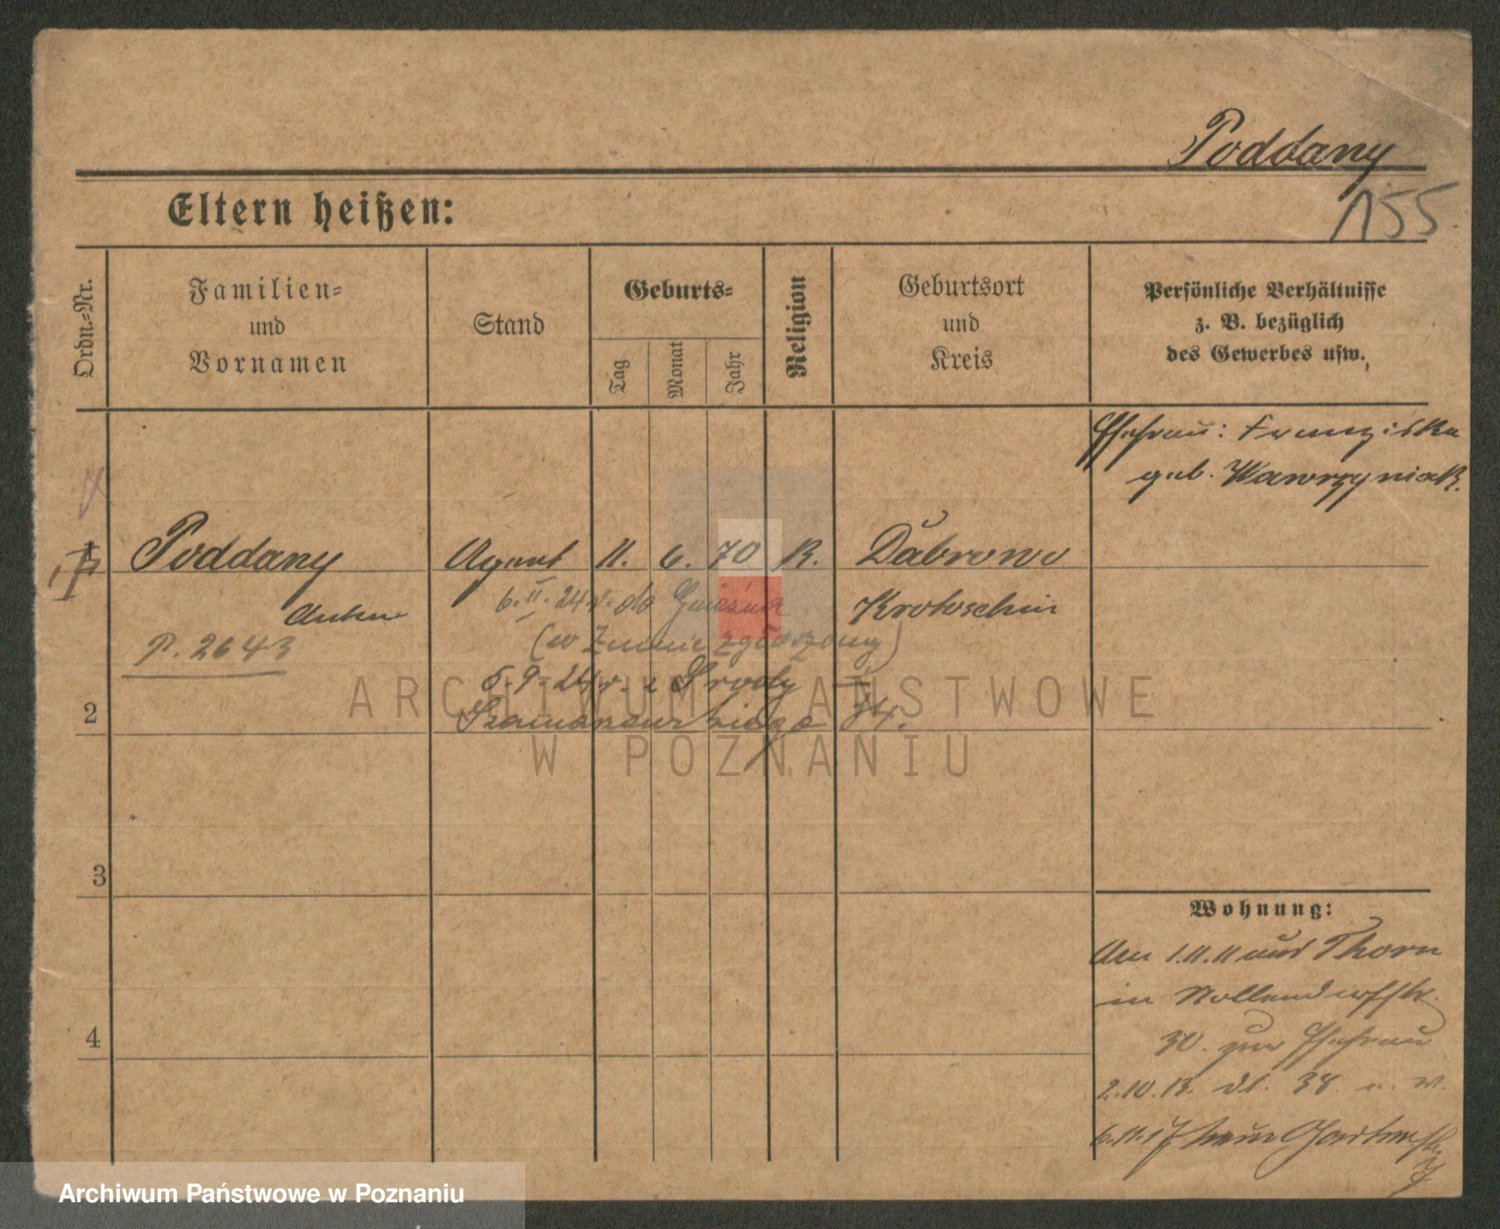 Poddany
155
Eltern heißen:
Ordn.-Nr.
Familien-
und
Vornamen
Stand
Geburts-
Tag
Monat
Jahr
Religion
Geburtsort
und
Kreis
Persönliche Verhältnisse
z. B. bezüglich
des Gewerbes usw.
Ehefrau: Franziska
geb. Wawrzyniak.
Poddany Agent 11. 6. 70 K. Dabrowo
Anton Krotoschin
6. II. 24 r. do Gniezna
P. 2643
(w Zninie zgłoszony)
5. 9. 24 r. z Środy
2
34.
3
4
Wohnung:
Am 1.11.11 aus Thorn
in Nollendorfstr.
30. zur Ehefrau
2.10.13. dt. 38
6.11.17
ARCHIWUM PAŃSTWOWE
W POZNANIU
Archiwum Państwowe w Poznaniu